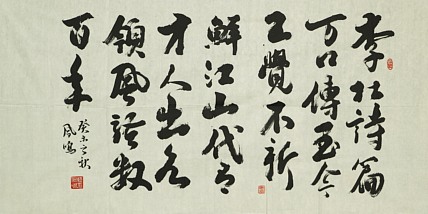 李杜詩篇
万口傳至今
已覺不新
鮮江山代有
才人出各
領風騷數
百年
癸未之秋